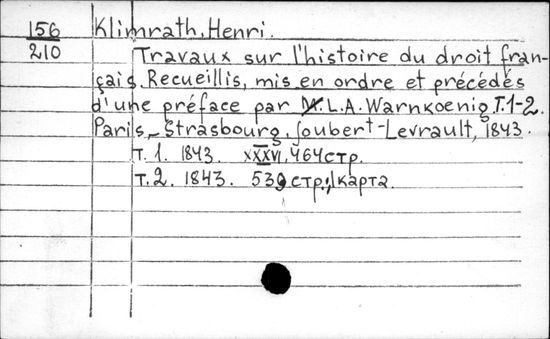 156 Klimrath, Henri.
210 Travaux sur l'histoire du droit fran-
çais. Recueillis, mis en ordre et précédés
d'une préface par M. L.A. Warnkoenig. T.1-2.
Paris-Strasbourg, Joubert-Levrault, 1843.
T. 1. 1843. XXXVI, 464 стр.
T. 2. 1843. 539 стр., 1 карта.